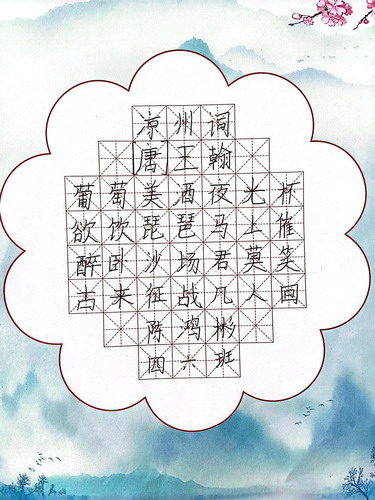 凉州词
唐王翰
葡萄美酒夜光杯
欲饮琵琶马上催
醉卧沙场君莫笑
古来征战几人回
陈鸿彬
四六班